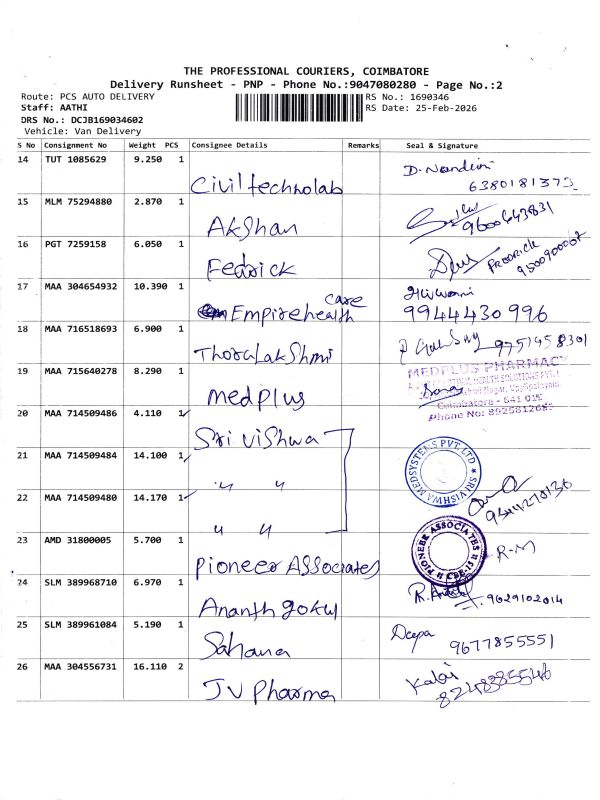 THE PROFESSIONAL COURIERS, COIMBATORE
Delivery Runsheet - PNP - Phone No.:9047080280 - Page No.:2
Route: PCS AUTO DELIVERY
RS No.: 1690346
Staff: AATHI
RS Date: 25-Feb-2026
DRS No.: DCJB169034602
Vehicle: Van Delivery
S No Consignment No Weight PCS Consignee Details Remarks Seal & Signature
14 TUT 1085629 9.250 1 Civiltechnolab D. Nandini
6380181373
15 MLM 75294880 2.870 1 Akshan 9600643831
16 PGT 7259158 6.050 1 Fedrick FREDRICK
9500900067
17 MAA 304654932 10.390 1 Empirehealth care
9944430996
18 MAA 716518693 6.900 1 ThoraLakshmi 9751458301
19 MAA 715640278 8.290 1 medplus MEDPLUS PHARMACY
Coimbatore - 641 015
Phone No: 892581268
20 MAA 714509486 4.110 1 Sri Vishwa
21 MAA 714509484 14.100 1 〃 〃 SRI VISHWA MEDSYSTEMS PVT. LTD
22 MAA 714509480 14.170 1 〃 〃
23 AMD 31800005 5.700 1 Pioneer Associates PIONEER ASSOCIATES CBE-15 R-M
24 SLM 389968710 6.970 1 Ananth gokul 9629102014
25 SLM 389961084 5.190 1 Sahana Deepa
9677855551
26 MAA 304556731 16.110 2 JV Pharma Kalai
8248385546